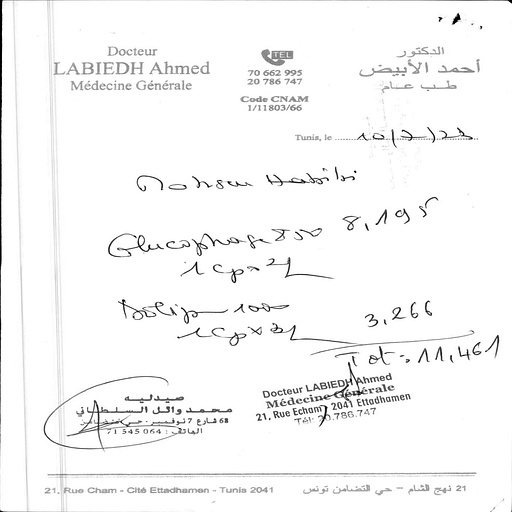 Docteur
LABIEDH Ahmed
Médecine Générale
TEL
70 662 995
20 786 747
Code CNAM
1/11803/66
الدكتور
أحمد الأبيض
طب عام
Tunis, le 10/7/23
Mohsen Habibi
Glucophage 850 8,195
1 cp x 2/j
Dolip 1000 3,266
1 cp x 3/j
Tot: 11,461
صيدلية
محمد وائل السلطاني
68 شارع 7 نوفمبر - حي
الهاتف : 71 545 064
Docteur LABIEDH Ahmed
Médecine Générale
21, Rue Echam, 2041 Ettadhamen
Tél: 20.786.747
21, Rue Cham - Cité Ettadhamen - Tunis 2041
21 نهج الشام – حي التضامن تونس